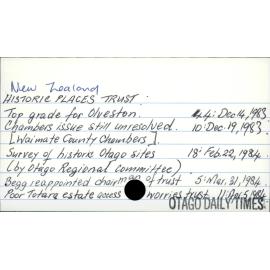 New Zealand
HISTORIC PLACES TRUST
Top grade for Olveston. 44: Dec 14, 1983
Chambers issue still unresolved. 10: Dec. 19, 1983.
[Waimate County Chambers].
Survey of historic Otago sites 18: Feb. 22, 1984.
(by Otago Regional Committee)
Begg reappointed chairman of trust 5: Mar. 31, 1984.
Poor Totara estate access worries trust 11: Apr 5, 1984.
OTAGO DAILY TIMES